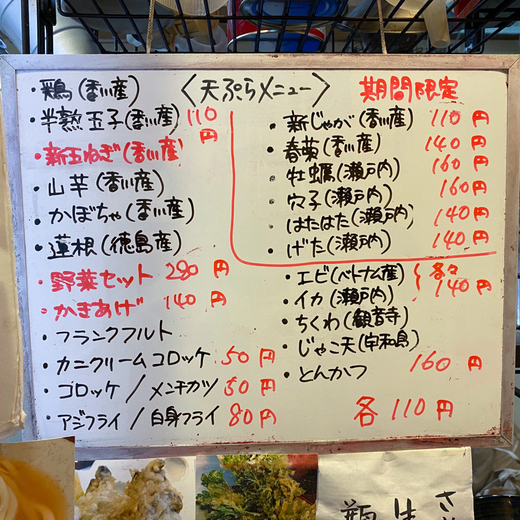 〈天ぷらメニュー〉
・鶏(香川産)
・半熟玉子(香川産) 110円
・新玉ねぎ(香川産)
・山芋(香川産)
・かぼちゃ(香川産)
・蓮根(徳島産)
・野菜セット 280円
・かきあげ 140円
・フランクフルト
・カニクリームコロッケ 50円
・コロッケ/メンチカツ 50円
・アジフライ/白身フライ 80円
期間限定
・新じゃが(香川産) 110円
・春菊(香川産) 140円
・牡蠣(瀬戸内) 160円
・穴子(瀬戸内) 160円
・はたはた(瀬戸内) 140円
・げた(瀬戸内) 140円
・エビ(ベトナム産) 各々
・イカ(瀬戸内) 140円
・ちくわ(観音寺)
・じゃこ天(宇和島)
・とんかつ 160円
各110円